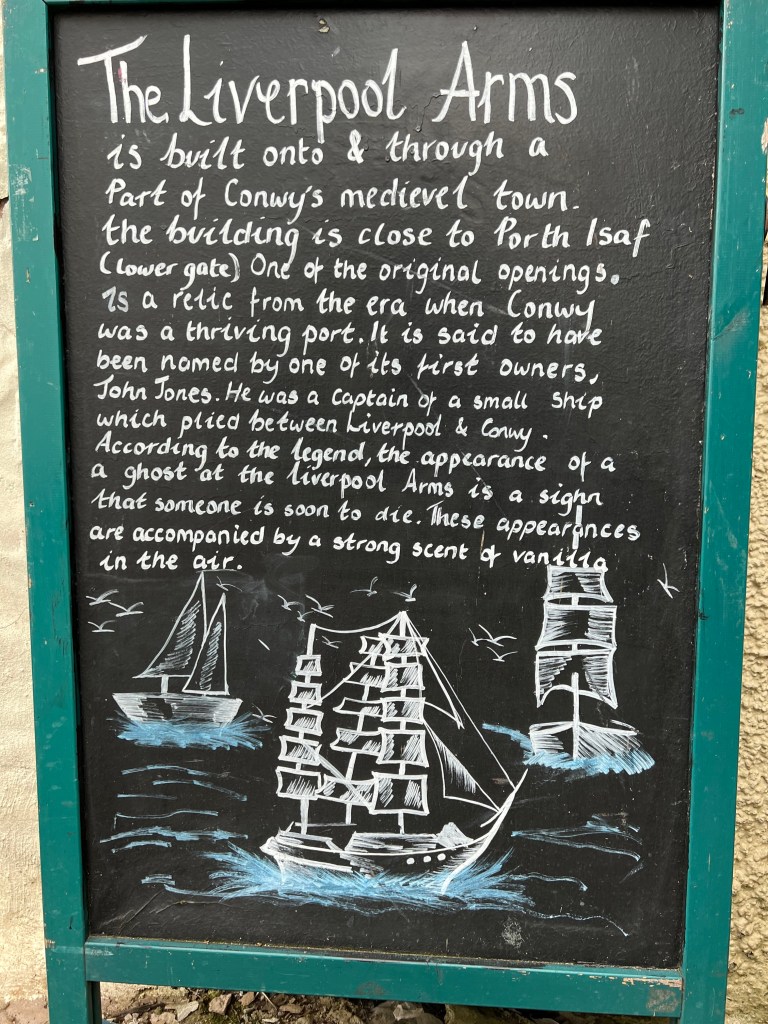 The Liverpool Arms
is built onto & through a
Part of Conwy's medievel town.
the building is close to Porth Isaf
(lower gate) One of the original openings.
Is a relic from the era when Conwy
was a thriving port. It is said to have
been named by one of its first owners,
John Jones. He was a captain of a small ship
which plied between Liverpool & Conwy.
According to the legend, the appearance of a
a ghost at the liverpool Arms is a sighn
that someone is soon to die. These appearances
are accompanied by a strong scent of vanilla
in the air.